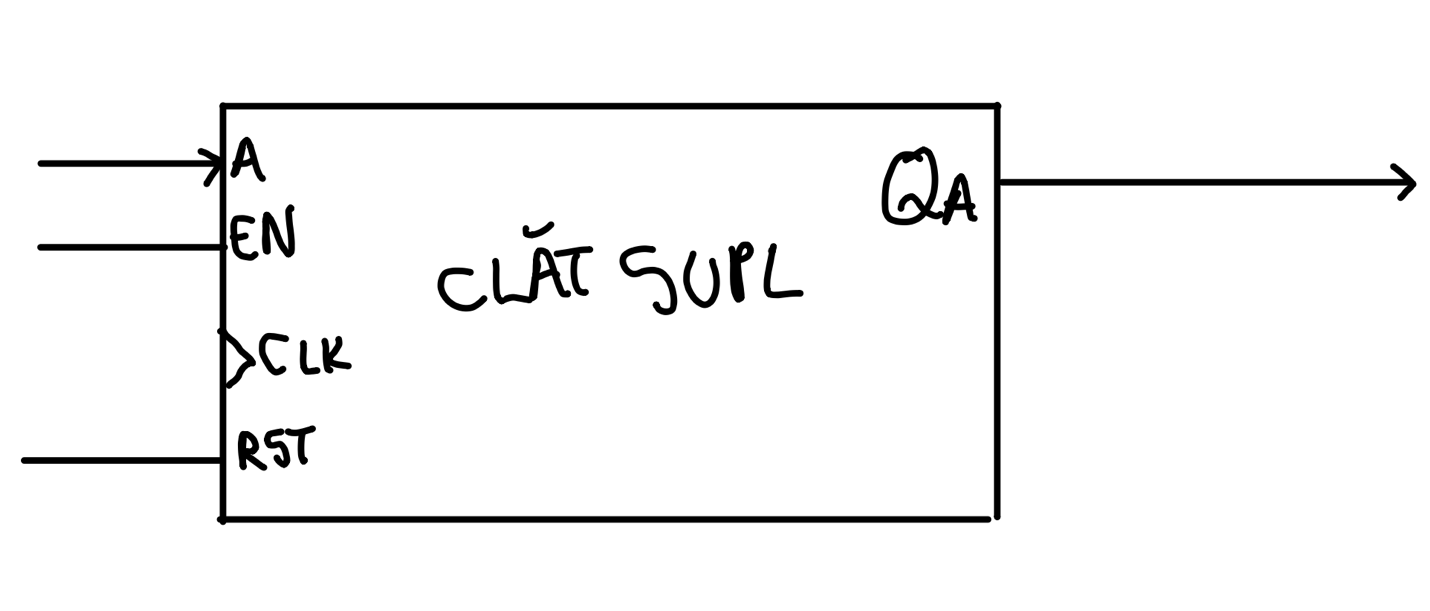 A
EN
CLK
RST
CLĂT SUPL
QA